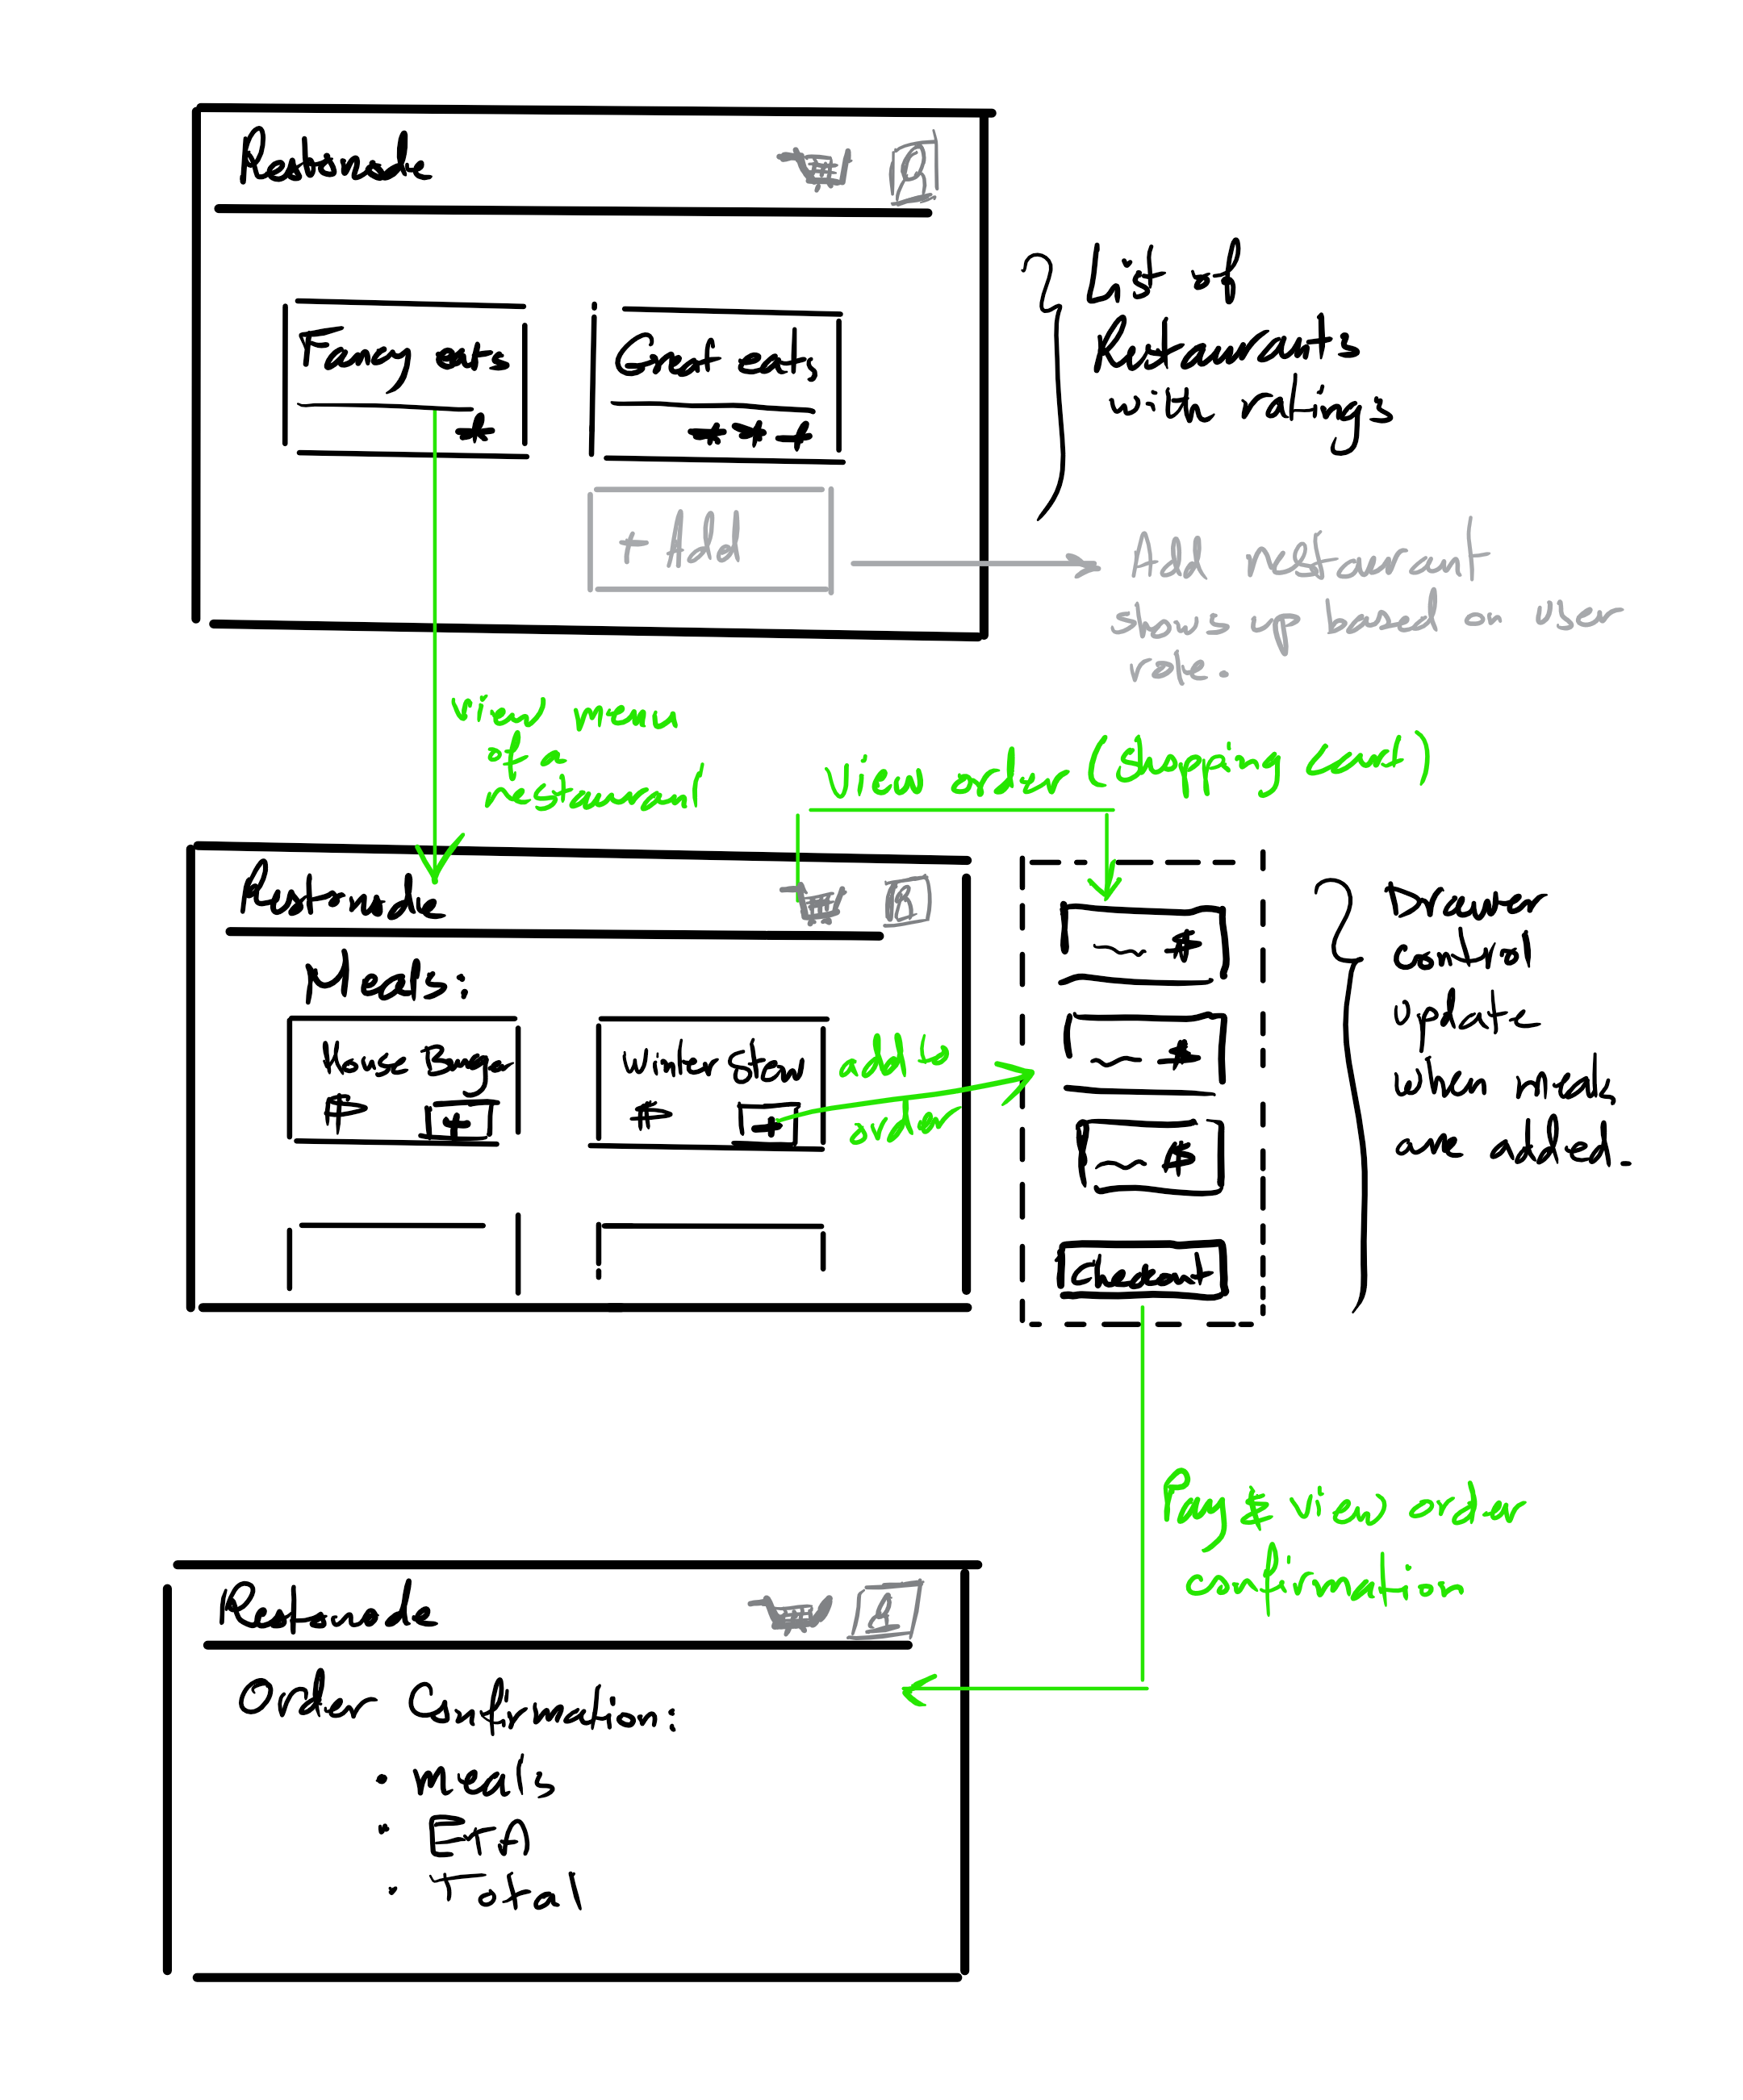 Restonode
Fancy eats
*
Great eats
* * *
+ Add
List of
Restaurants
with ratings
Add restaurant
shows up based on user
role.
view menu
of a
restaurant
View order (shopping cart)
Restonode
Meals:
House Burger
$
+
Winter Stew
$
+
add to
order
$
$
$
Checkout
Drawer
control
update
when meals
are added.
Pay & view order
confirmation
Restonode
Order Confirmation:
• meals
• ETA
• Total